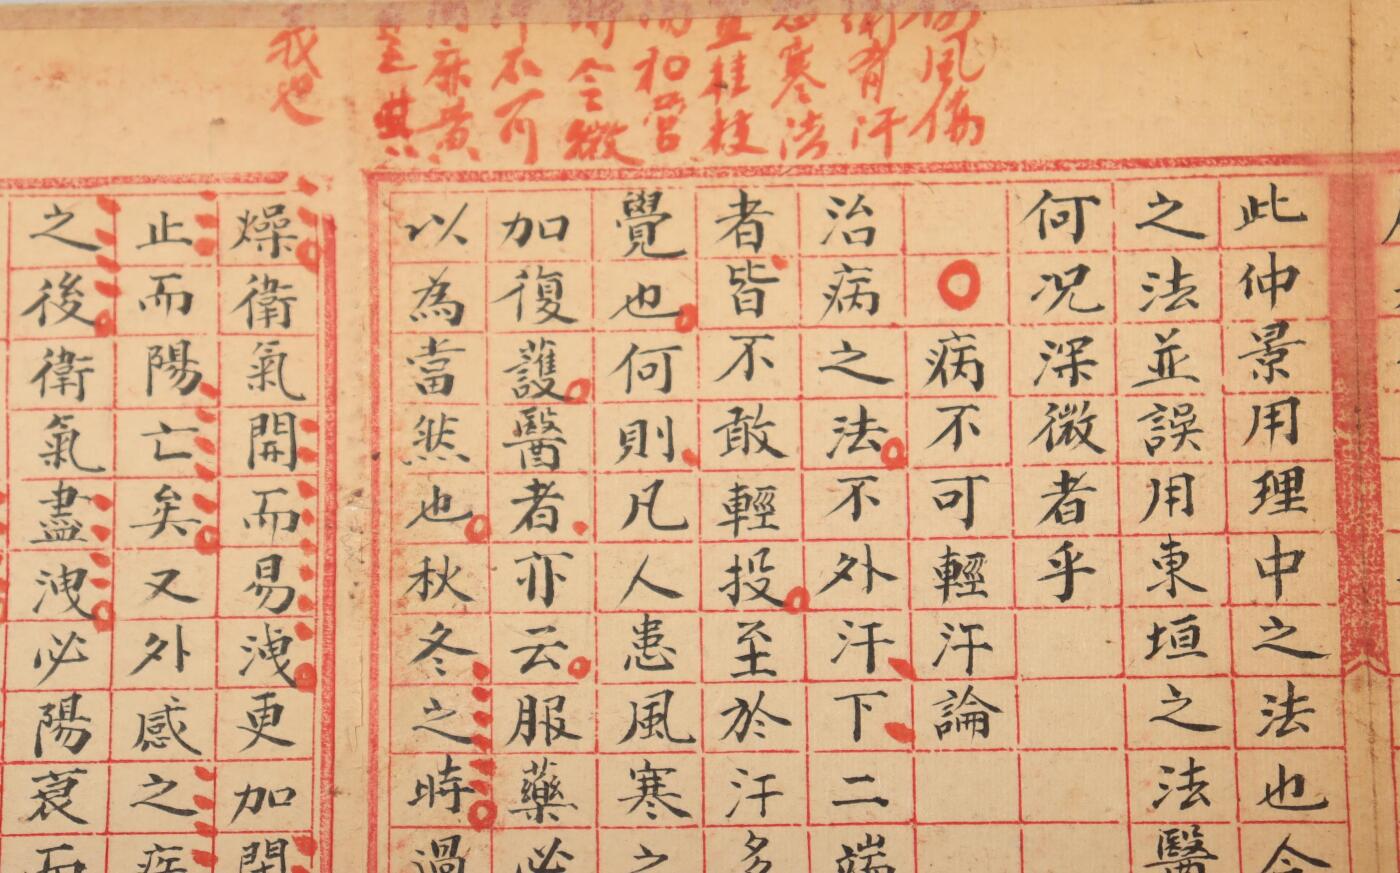 風傷
有汗
寒法
桂枝
和營
令微
不可
麻黃
其
我也
此仲景用理中之法也今
之法並誤用東垣之法醫
何況深微者乎
病不可輕汗論
治病之法不外汗下二端
者皆不敢輕投至於汗多
覺也何則凡人患風寒之
加復護醫者亦云服藥必
以為當然也秋冬之時過
燥衛氣開而易洩更加閉
止而陽亡矣又外感之疾
之後衛氣盡洩必陽衰而